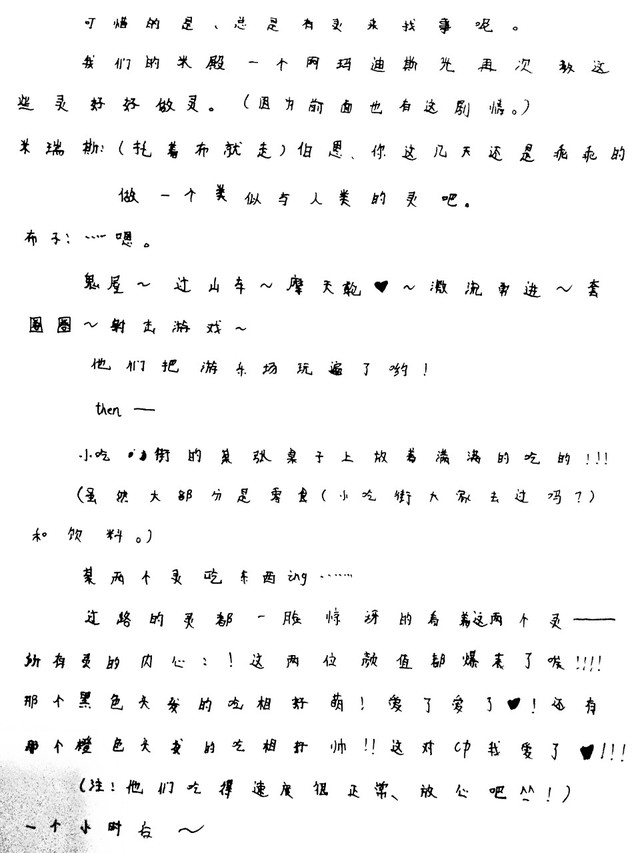 可惜的是、总是有灵来找事呢。
我们的米殿一个阿玛迪斯光再次教这
些灵好好做灵。（因为前面也有这剧情。）
米瑞斯:（扎着布就走）伯恩、你这几天还是乖乖的
做一个类似与人类的灵吧。
布子:……嗯。
鬼屋～过山车～摩天轮♥～激流勇进～套
圈圈～射击游戏～
他们把游乐场玩遍了哟！
then —
小吃街的某张桌子上放着满满的吃的!!!
(虽然大部分是零食(小吃街大家去过吗？)
和饮料。)
某两个灵吃东西ing……
过路的灵都一脸惊讶的看着这两个灵——
所有灵的内心:！这两位颜值都爆表了唉!!!!
那个黑色头发的吃相好萌！爱了爱了♥！还有
那个橙色头发的吃相好帅!!这对CP我爱了♥!!!
(注！他们吃得速度很正常、放心吧^^！)
一个小时后～